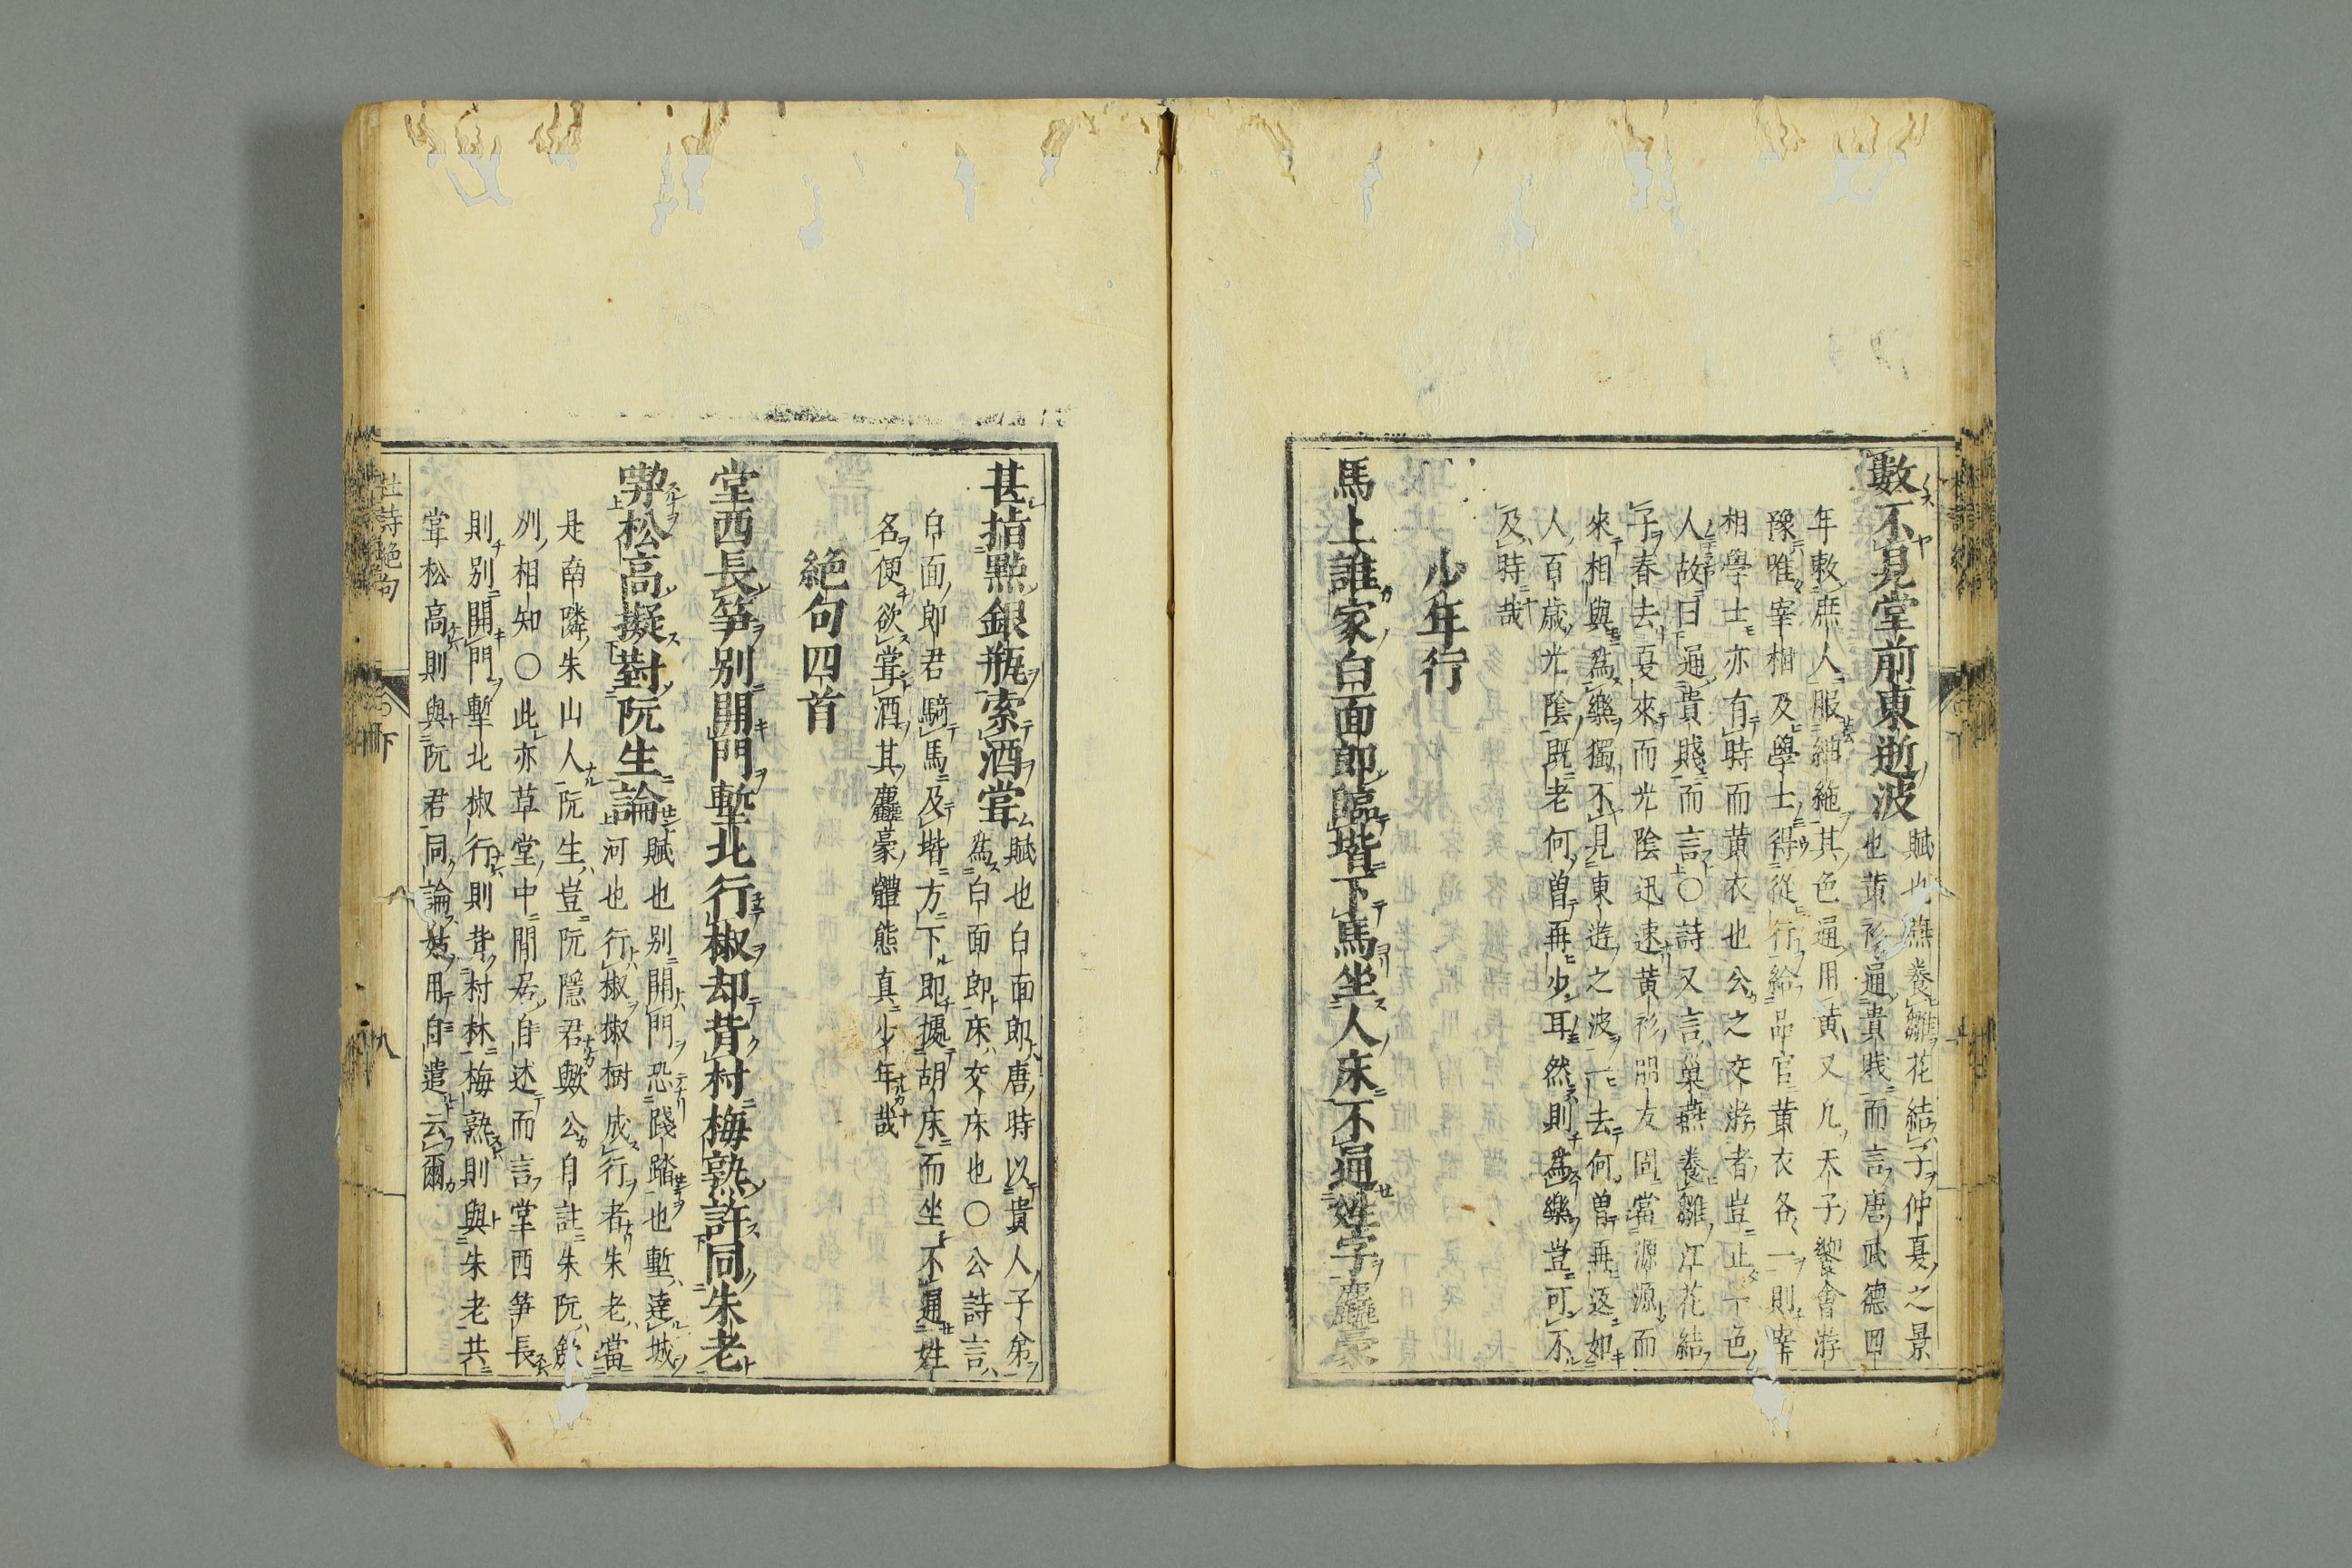 數不見堂前東逝波
賦也燕養雛花結子仲夏之景
也黃衫通貴賤而言唐武德四
年敕庶人服紬絁其色通用黃又凡天子饗會游
豫唯宰相及學士得從行給品官黃衣各一則宰
相學士亦有時而黃衣也公之交游者豈止一色
人故曰通貴賤而言〇詩又言巢燕養雛江花結
子春去夏來而光陰迅速黃衫朋友固當源源而
來相與為樂獨不見東逝之波一去何曾再返如
人百歲光陰既老何曾再少耳然則為樂豈可不
及時哉
少年行
馬上誰家白面郎臨堦下馬坐人床不通姓字麤豪
甚指點銀瓶索酒甞
賦也白面郎唐時以貴人子弟
為白面郎床交床也〇公詩言
白面郎君騎馬及堦方下即據胡床而坐不通姓
名便欲甞酒其麤豪體態真少年哉
絕句四首
堂西長笋別開門塹北行椒却背村梅熟許同朱老
喫松高擬對阮生論
賦也別開門恐踐踏也塹遶城
河也行椒椒樹成行者朱老當
是南隣朱山人阮生豈阮隱君歟公自註朱阮劍
外相知〇此亦草堂中閒居自述而言堂西笋長
則別開門塹北椒行則背村林梅熟則與朱老共
甞松高則與阮君同論姑用自遣云爾
杜詩絕句
下
九